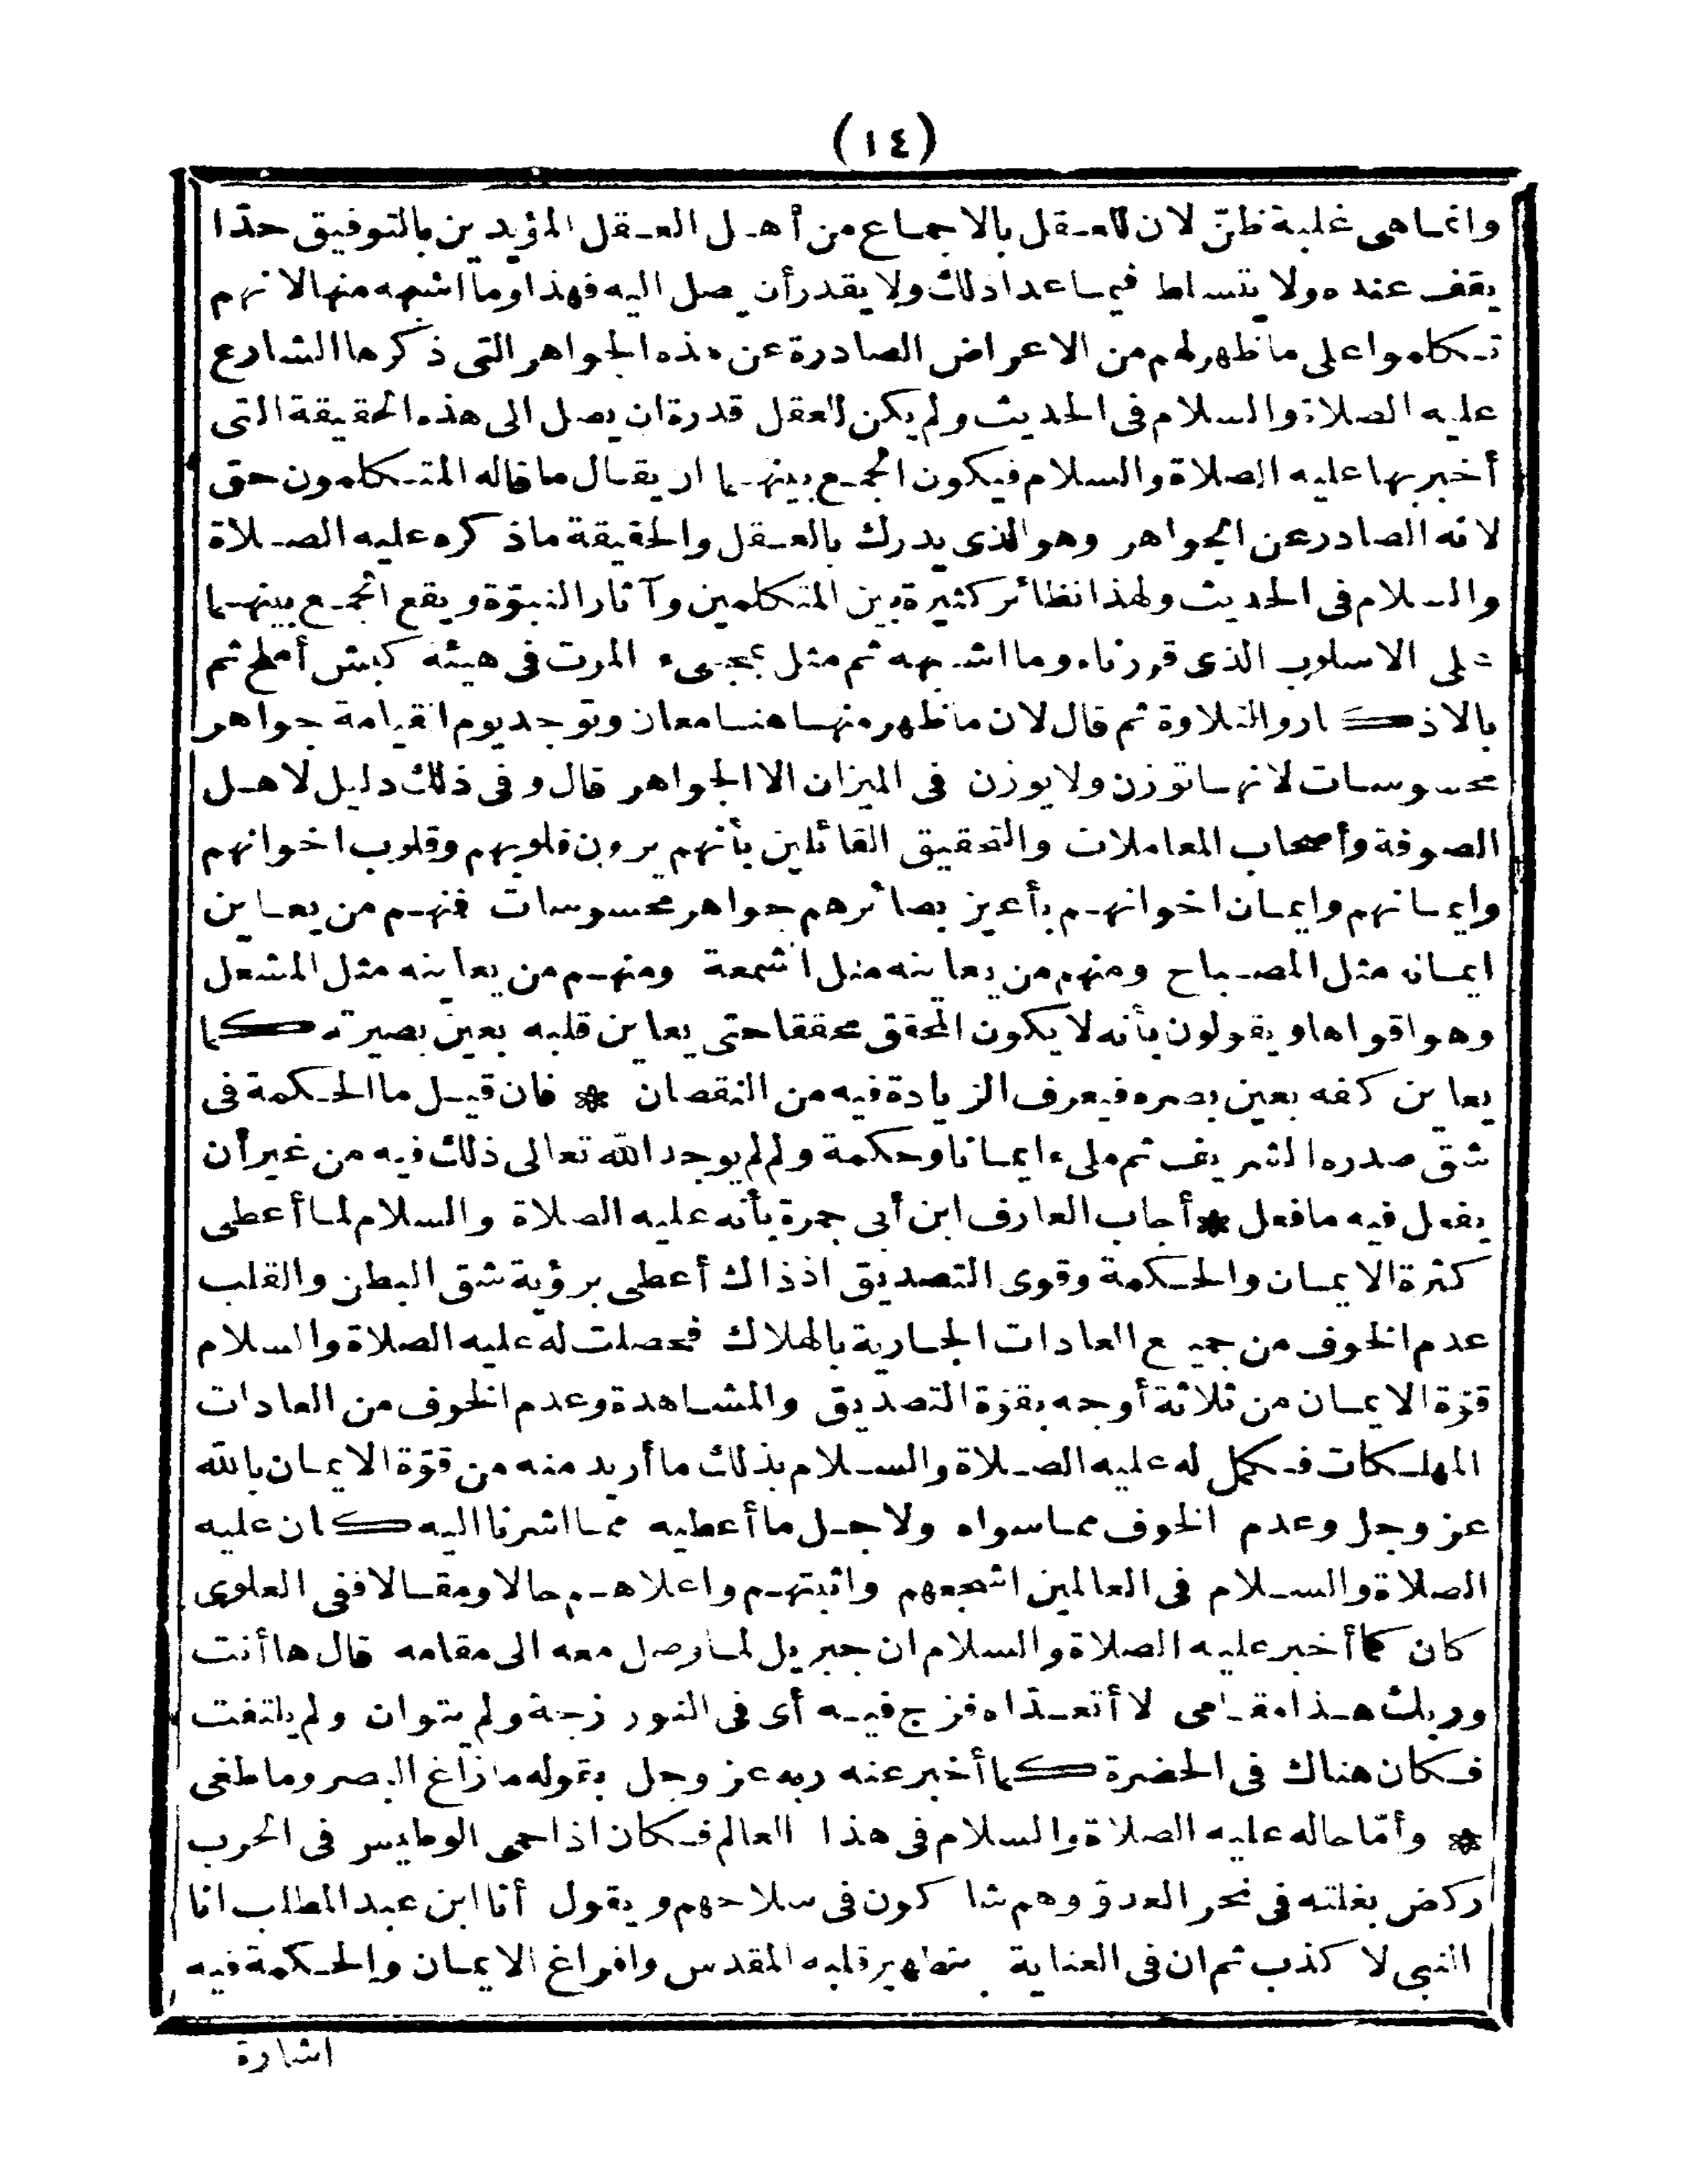 (١٤)
وانماهى غلبة ظنّ لان للعقل بالاجماع من أهل العقل المؤيدين بالتوفيق حدّا
يقف عنده ولا يتسلط فيما عدا ذلك ولا يقدر أن يصل اليه فهذا وما اشبهه منها لانهم
تكلموا على ما ظهر لهم من الاعراض الصادرة عن هذه الجواهر التى ذكرها الشارع
عليه الصلاة والسلام فى الحديث ولم يكن للعقل قدرة ان يصل الى هذه الحقيقة التى
أخبر بها عليه الصلاة والسلام فيكون الجمع بينهما ان يقال ما قاله المتكلمون حق
لانه الصادر عن الجواهر وهو الذى يدرك بالعقل والحقيقة ماذكره عليه الصلاة
والسلام فى الحديث ولهذا نظائر كثيرة بين المتكلمين وآثار النبوّة ويقع الجمع بينهما
على الاسلوب الذى قررناه وما اشبهه ثم مثل بمجىء الموت فى هيئة كبش أملح ثم
بالاذكار والتلاوة ثم قال لان ما ظهر منها هنا معان وتوجد يوم القيامة جواهر
محسوسات لانها توزن ولا يوزن فى الميزان الا الجواهر قال وفى ذلك دليل لاهل
الصوفة وأصحاب المعاملات والتحقيق القائلين بأنهم يرون قلوبهم وقلوب اخوانهم
وايمانهم وايمان اخوانهم بأعين بصائرهم جواهر محسوسات فمنهم من يعاين
ايمانه مثل المصباح ومنهم من يعاينه مثل الشمعة ومنهم من يعاينه مثل المشعل
وهو اقواها ويقولون بأنه لا يكون المحقق محققا حتى يعاين قلبه بعين بصيرته كما
يعاين كفه بعين بصره فيعرف الزيادة فيه من النقصان * فان قيل ما الحكمة فى
شق صدره الشريف ثم ملىء ايمانا وحكمة ولم لم يوجد الله تعالى ذلك فيه من غير أن
يفعل فيه ما فعل * أجاب العارف ابن أبى جمرة بأنه عليه الصلاة والسلام لما أعطى
كثرة الايمان والحكمة وقوى التصديق اذ ذاك أعطى برؤية شق البطن والقلب
عدم الخوف من جميع العادات الجارية بالهلاك فحصلت له عليه الصلاة والسلام
قوّة الايمان من ثلاثة أوجه بقوّة التصديق والمشاهدة وعدم الخوف من العادات
المهلكات فكمل له عليه الصلاة والسلام بذلك ما أريد منه من قوّة الايمان بالله
عز وجل وعدم الخوف مما سواه ولاجل ما أعطيه مما اشرنا اليه كان عليه
الصلاة والسلام فى العالمين اشجعهم واثبتهم واعلاهم حالا ومقالا ففى العلوى
كان كما أخبر عليه الصلاة والسلام ان جبريل لما وصل معه الى مقامه قال ها أنت
وربك هذا مقامى لا أتعدّاه فزج فيه أى فى النور زجة ولم يتوان ولم يلتفت
فكان هناك فى الحضرة كما أخبر عنه ربه عز وجل بقوله ما زاغ البصر وما طغى
* وأمّا حاله عليه الصلاة والسلام فى هذا العالم فكان اذا حمى الوطيس فى الحرب
ركض بغلته فى نحر العدوّ وهم شاكون فى سلاحهم ويقول أنا ابن عبد المطلب انا
النبى لا كذب ثم ان فى العناية بتطهير قلبه المقدس وافراغ الايمان والحكمة فيه
اشارة